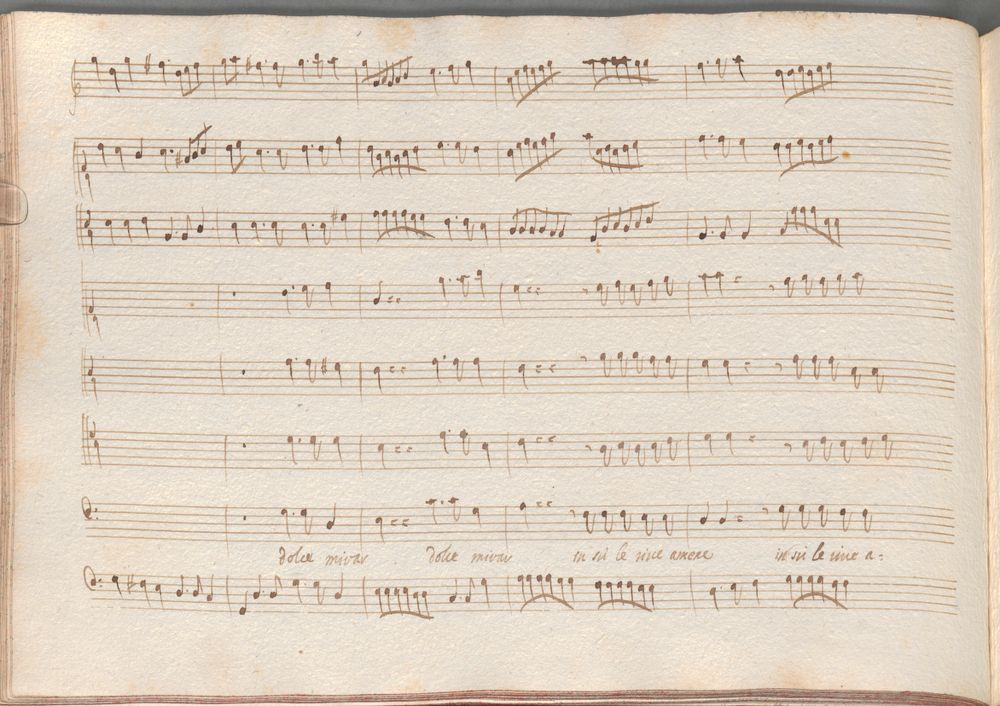 dolce mirar dolce mirar in sù le rive amene in sù le rive a=